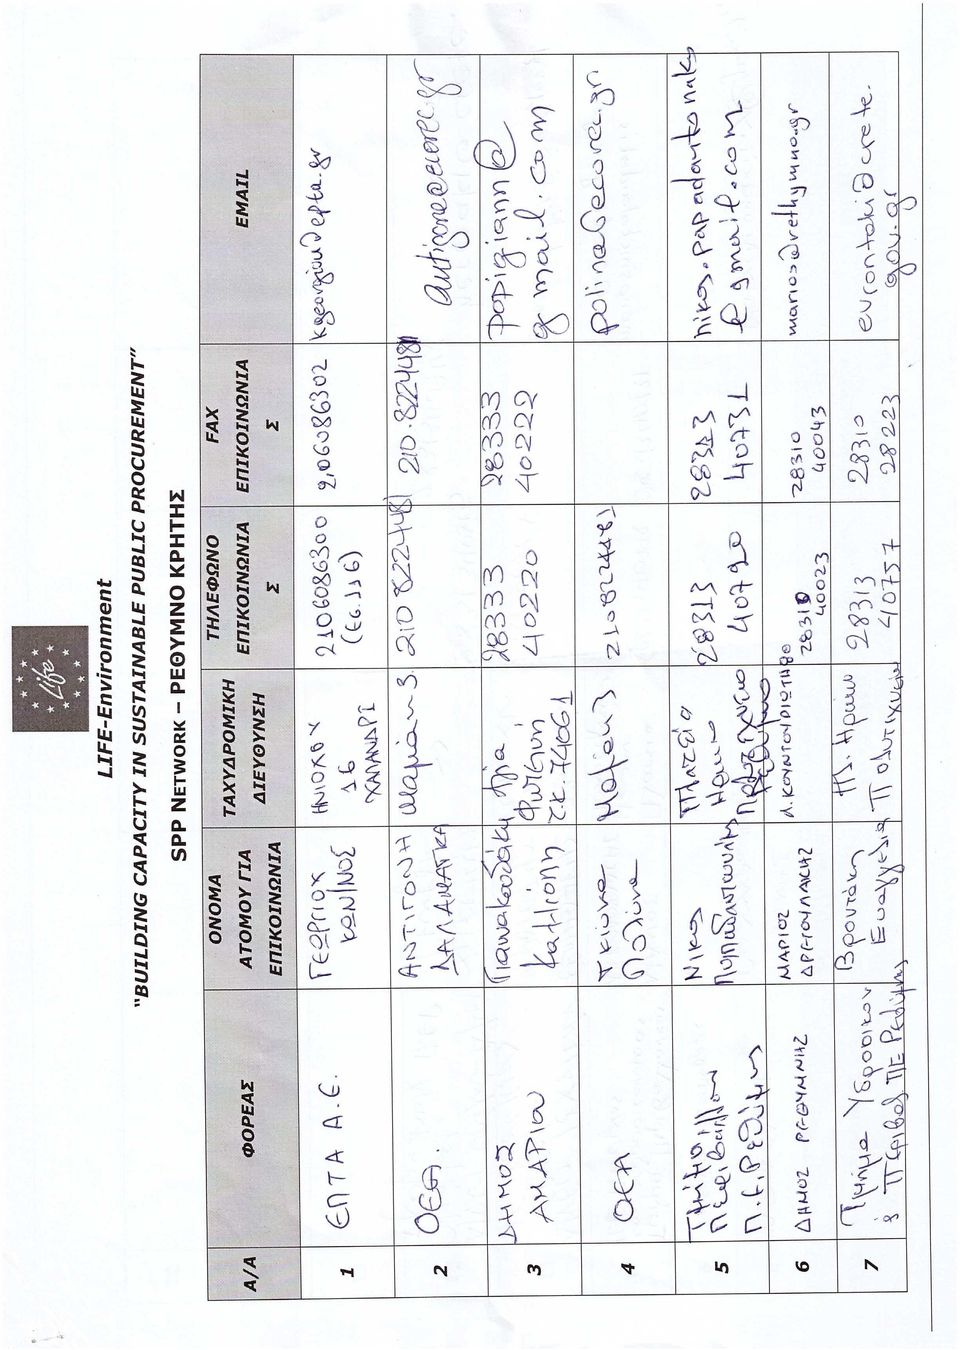 Life
LIFE-Environment
“BUILDING CAPACITY IN SUSTAINABLE PUBLIC PROCUREMENT”
SPP NETWORK – ΡΕΘΥΜΝΟ ΚΡΗΤΗΣ
Α/Α
ΦΟΡΕΑΣ
ΟΝΟΜΑ
ΑΤΟΜΟΥ ΓΙΑ
ΕΠΙΚΟΙΝΩΝΙΑ
ΤΑΧΥΔΡΟΜΙΚΗ
ΔΙΕΥΘΥΝΣΗ
ΤΗΛΕΦΩΝΟ
ΕΠΙΚΟΙΝΩΝΙΑ
Σ
FAX
ΕΠΙΚΟΙΝΩΝΙΑ
Σ
EMAIL
1
ΕΠΤΑ Α.Ε.
ΓΕΩΡΓΙΟΥ
ΚΩΝ/ΝΟΣ
ΗΝΙΟΧΟΥ
16
ΧΑΛΑΝΔΡΙ
2106086300
(εσ.116)
2106086302
kgeorgiou@epta.gr
2
ΟΕΑ.
ΑΝΤΙΓΟΝΗ
ΔΑΛΑΜΑΓΚΑ
3.
210 8224481
210.8224481
antigone@ecorec.gr
3
ΔΗΜΟΣ
ΑΜΑΡΙΟΥ
Γιαννακουδάκη
Καλλιόπη
Αγία
Φωτεινή
Τ.Κ. 74061
28333
40220
28333
40222
popigiann@
gmail.com
4
ΟΕΑ
Τκίωνα
Πολίνα
3
2108224481
polina@ecorec.gr
5
Τμήμα
Περιβάλλον
Π.Ε. Ρεθύμνης
Νίκος
Παπαδαντωνάκης
Πλατεία
28313
40790
28313
40731
nikos.papadantonakys
@gmail.com
6
ΔΗΜΟΣ ΡΕΘΥΜΝΗΣ
ΜΑΡΙΟΣ
ΔΡΕΤΟΥΛΑΚΗΣ
Λ. ΚΟΥΝΤΟΥΡΙΩΤΗ 80
28310
40023
28310
40043
marios@rethymno.gr
7
Τμήμα Υδροοικον
& Περιβαλ ΠΕ Ρεθύμνης
Βροντάκη
Ευαγγελία
Πλ. Ηρώων
Πολυτεχνείου
28313
40757
28310
28223
evrontaki@crete.
gov.gr